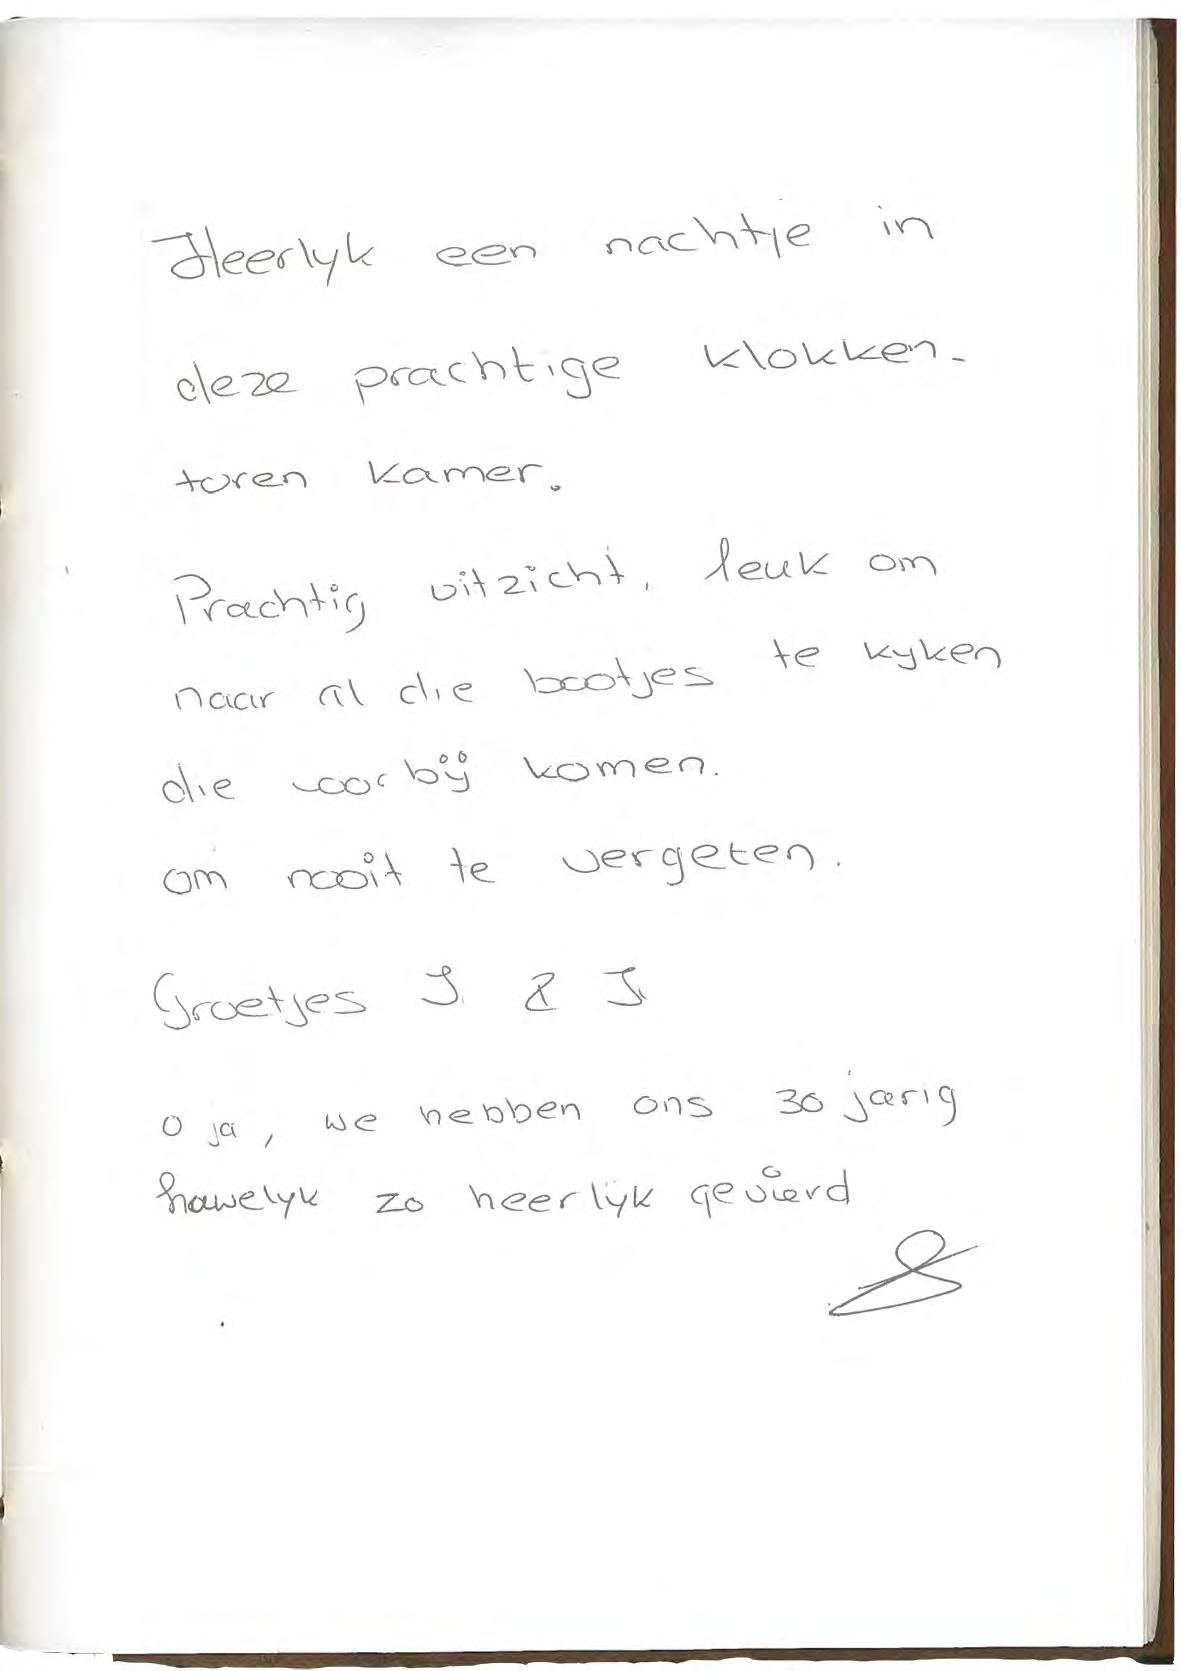 Heerlyk een nachtje in
deze prachtige klokken-
toren kamer.
Prachtig uitzicht, leuk om
naar al die bootjes te kyken
die voorbij komen.
om nooit te vergeten.
Groetjes J. & J.
O ja, we hebben ons 30 jarig
hawelyk zo heerlijk gevierd